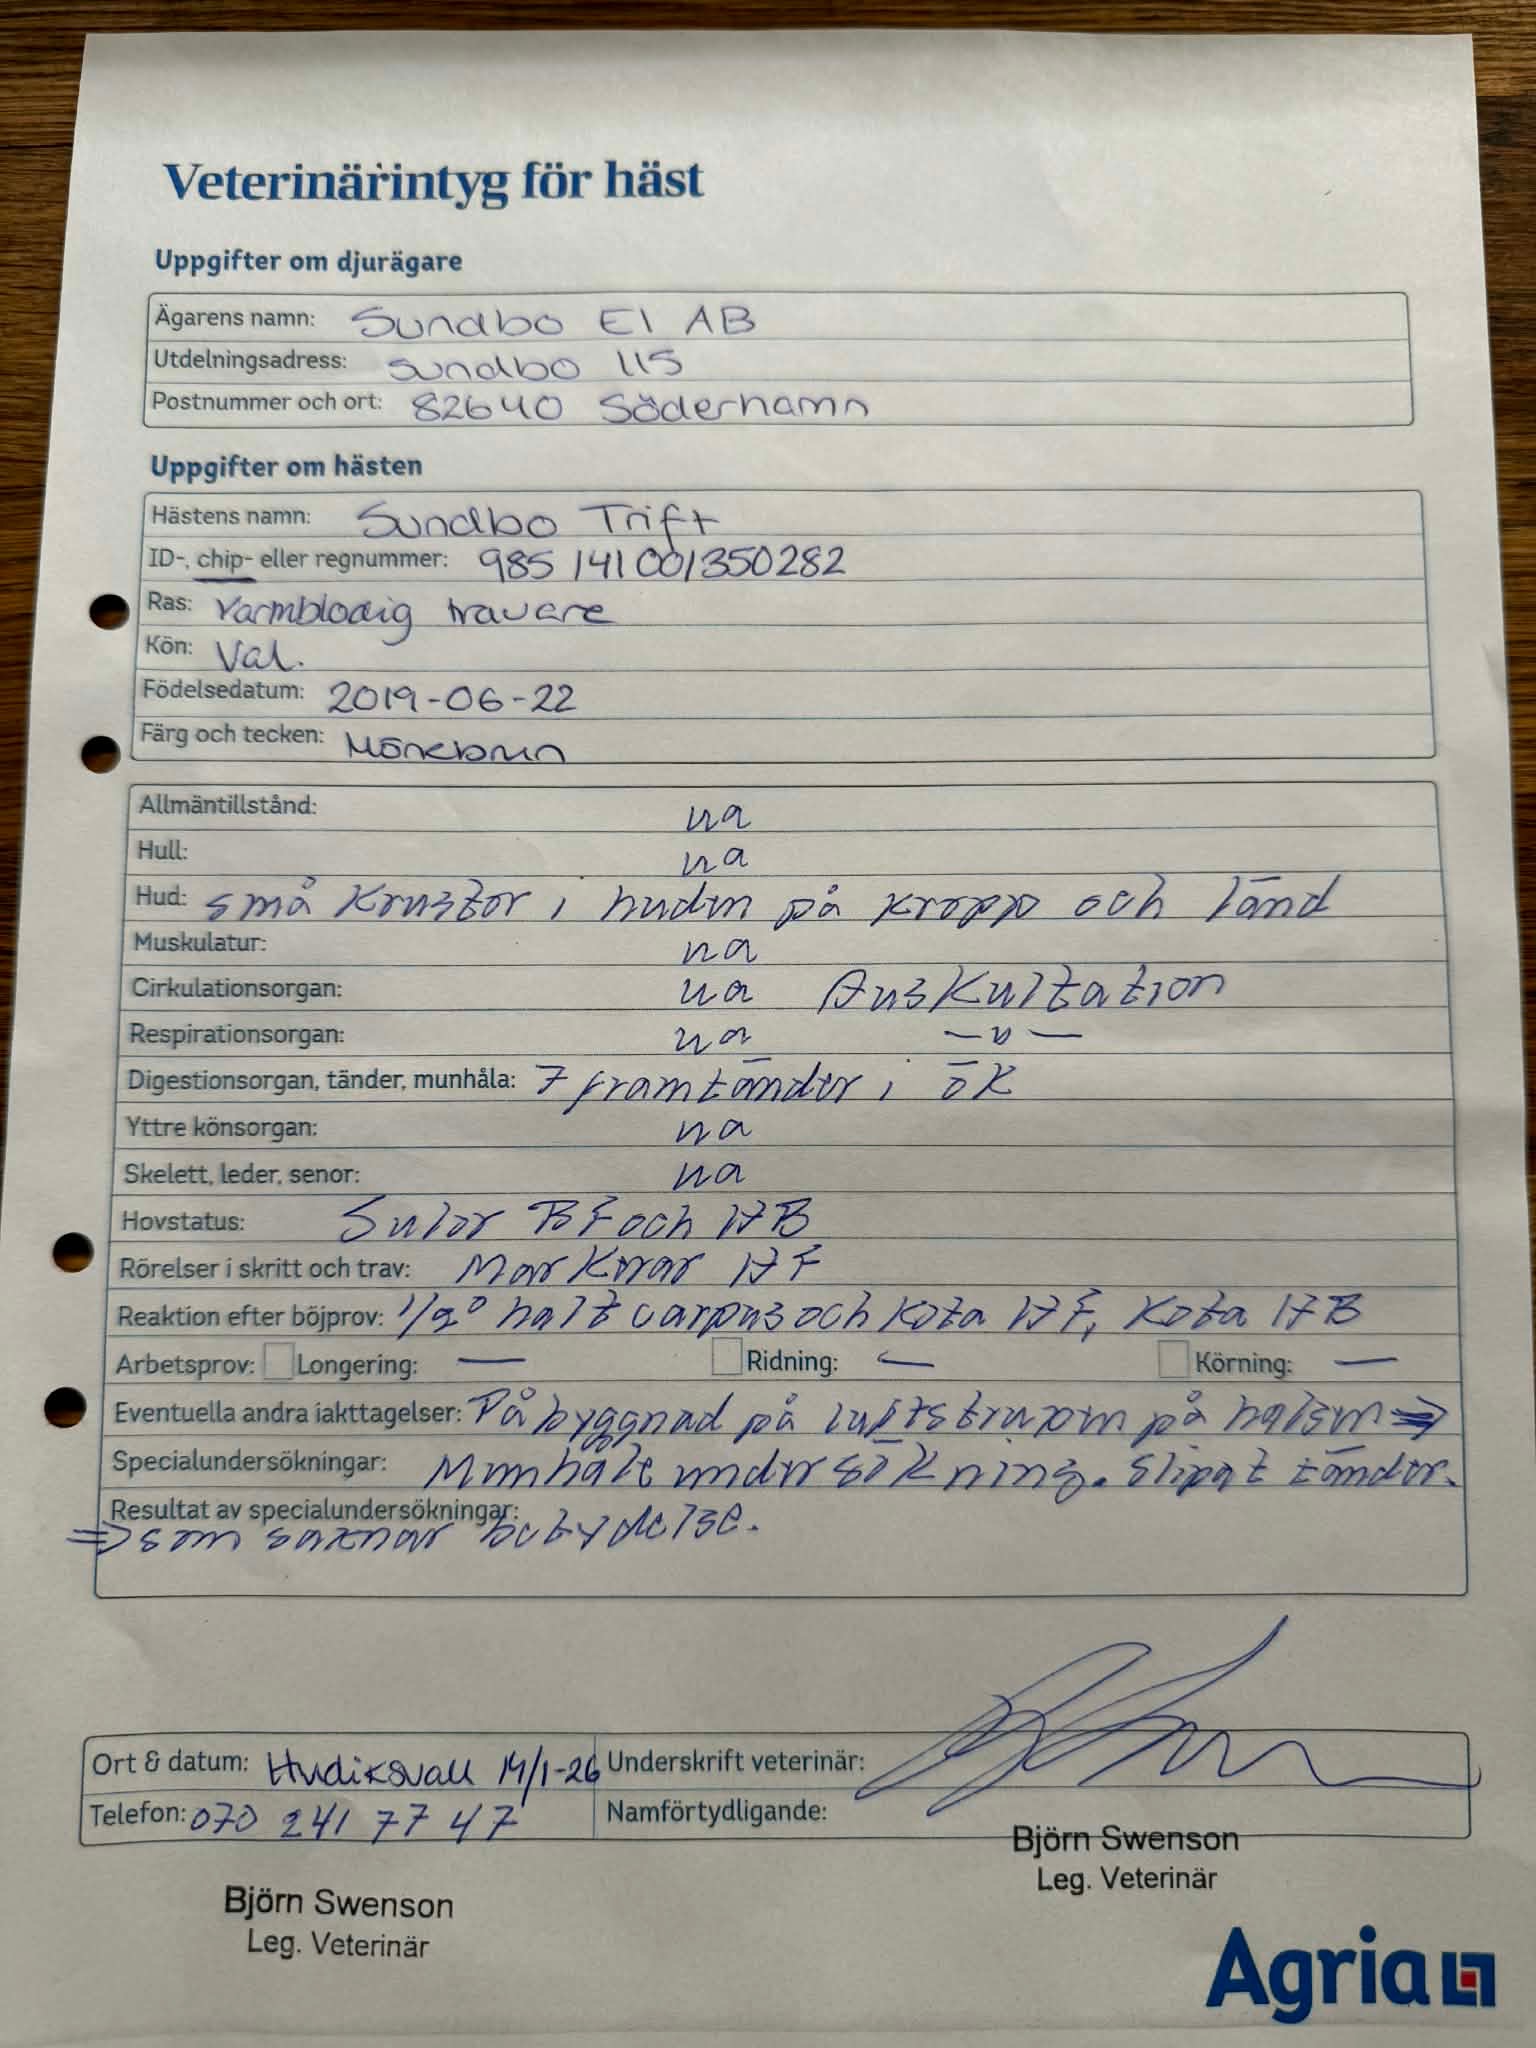 Veterinärintyg för häst
Uppgifter om djurägare
Ägarens namn: Sundbo El AB
Utdelningsadress: Sundbo 115
Postnummer och ort: 82640 Söderhamn
Uppgifter om hästen
Hästens namn: Sundbo Trift
ID-, chip- eller regnummer: 985 141 001350282
Ras: Varmblodig travare
Kön: Val.
Födelsedatum: 2019-06-22
Färg och tecken: Mörkbrun
Allmäntillstånd: ua
Hull: ua
Hud: små krustor i huden på kropp och länd
Muskulatur: ua
Cirkulationsorgan: ua Auskultation
Respirationsorgan: ua —"—
Digestionsorgan, tänder, munhåla: 7 framtänder i ök
Yttre könsorgan: ua
Skelett, leder, senor: ua
Hovstatus: Sulor BF och HB
Rörelser i skritt och trav: Markerar HF
Reaktion efter böjprov: 1/2° halt carpus och kota HF, kota HB
Arbetsprov: Longering: — Ridning: — Körning: —
Eventuella andra iakttagelser: Påbyggnad på luftstrupen på halsen ⇒
Specialundersökningar: Munhåleundersökning. Slipat tänder.
Resultat av specialundersökningar:
⇒ som saknar betydelse.
Ort & datum: Hudiksvall 14/1-26 Underskrift veterinär:
Telefon: 070 241 77 47 Namförtydligande:
Björn Swenson
Leg. Veterinär
Björn Swenson
Leg. Veterinär
Agria